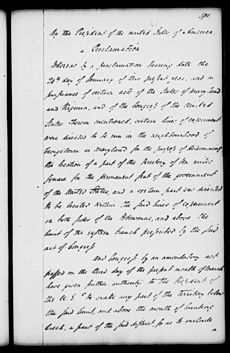 By the President of the United States of America.
a Proclamation
Whereas by a proclamation bearing date the
24th day of January of this present year, and in
pursuance of certain acts of the States of Maryland
and Virginia, and of the Congress of the United
States therein mentioned, certain lines of experiment
were directed to be run in the neighbourhood of
Georgetown in Maryland for the purpose of determining
the location of a part of the territory of ten miles
square for the permanent seat of the government
of the United States, and a certain part was directed
to be located within the said lines of experiment
on both sides of the Potowmac, and above the
limit of the Eastern branch prescribed by the said
act of Congress
And Congress by an amendatory act
passed on the third day of the present month of March
have given further authority to the President of
the U. S. "to make any part of the territory below
the said limit, and above the mouth of Hunting
creek, a part of the said district, so as to include
a